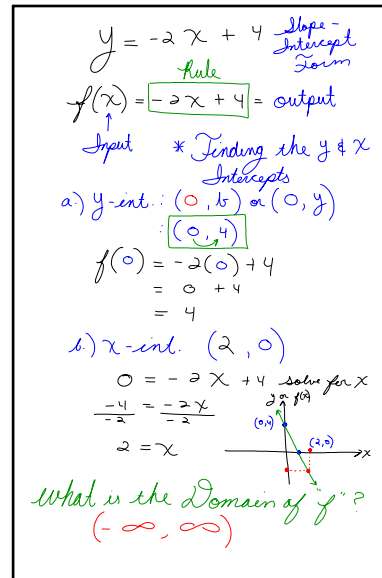 y = -2x + 4 Slope-Intercept Form
Rule
f(x) = -2x + 4 = output
Input * Finding the y & x Intercepts
a.) y-int. : (0, b) or (0, y)
: (0, 4)
f(0) = -2(0) + 4
= 0 + 4
= 4
b.) x-int. (2, 0)
0 = -2x + 4 solve for x
-4/-2 = -2x/-2
2 = x
y or f(x)
(0,4)
(2,0)
x
"f"
What is the Domain of "f"?
(-∞, ∞)